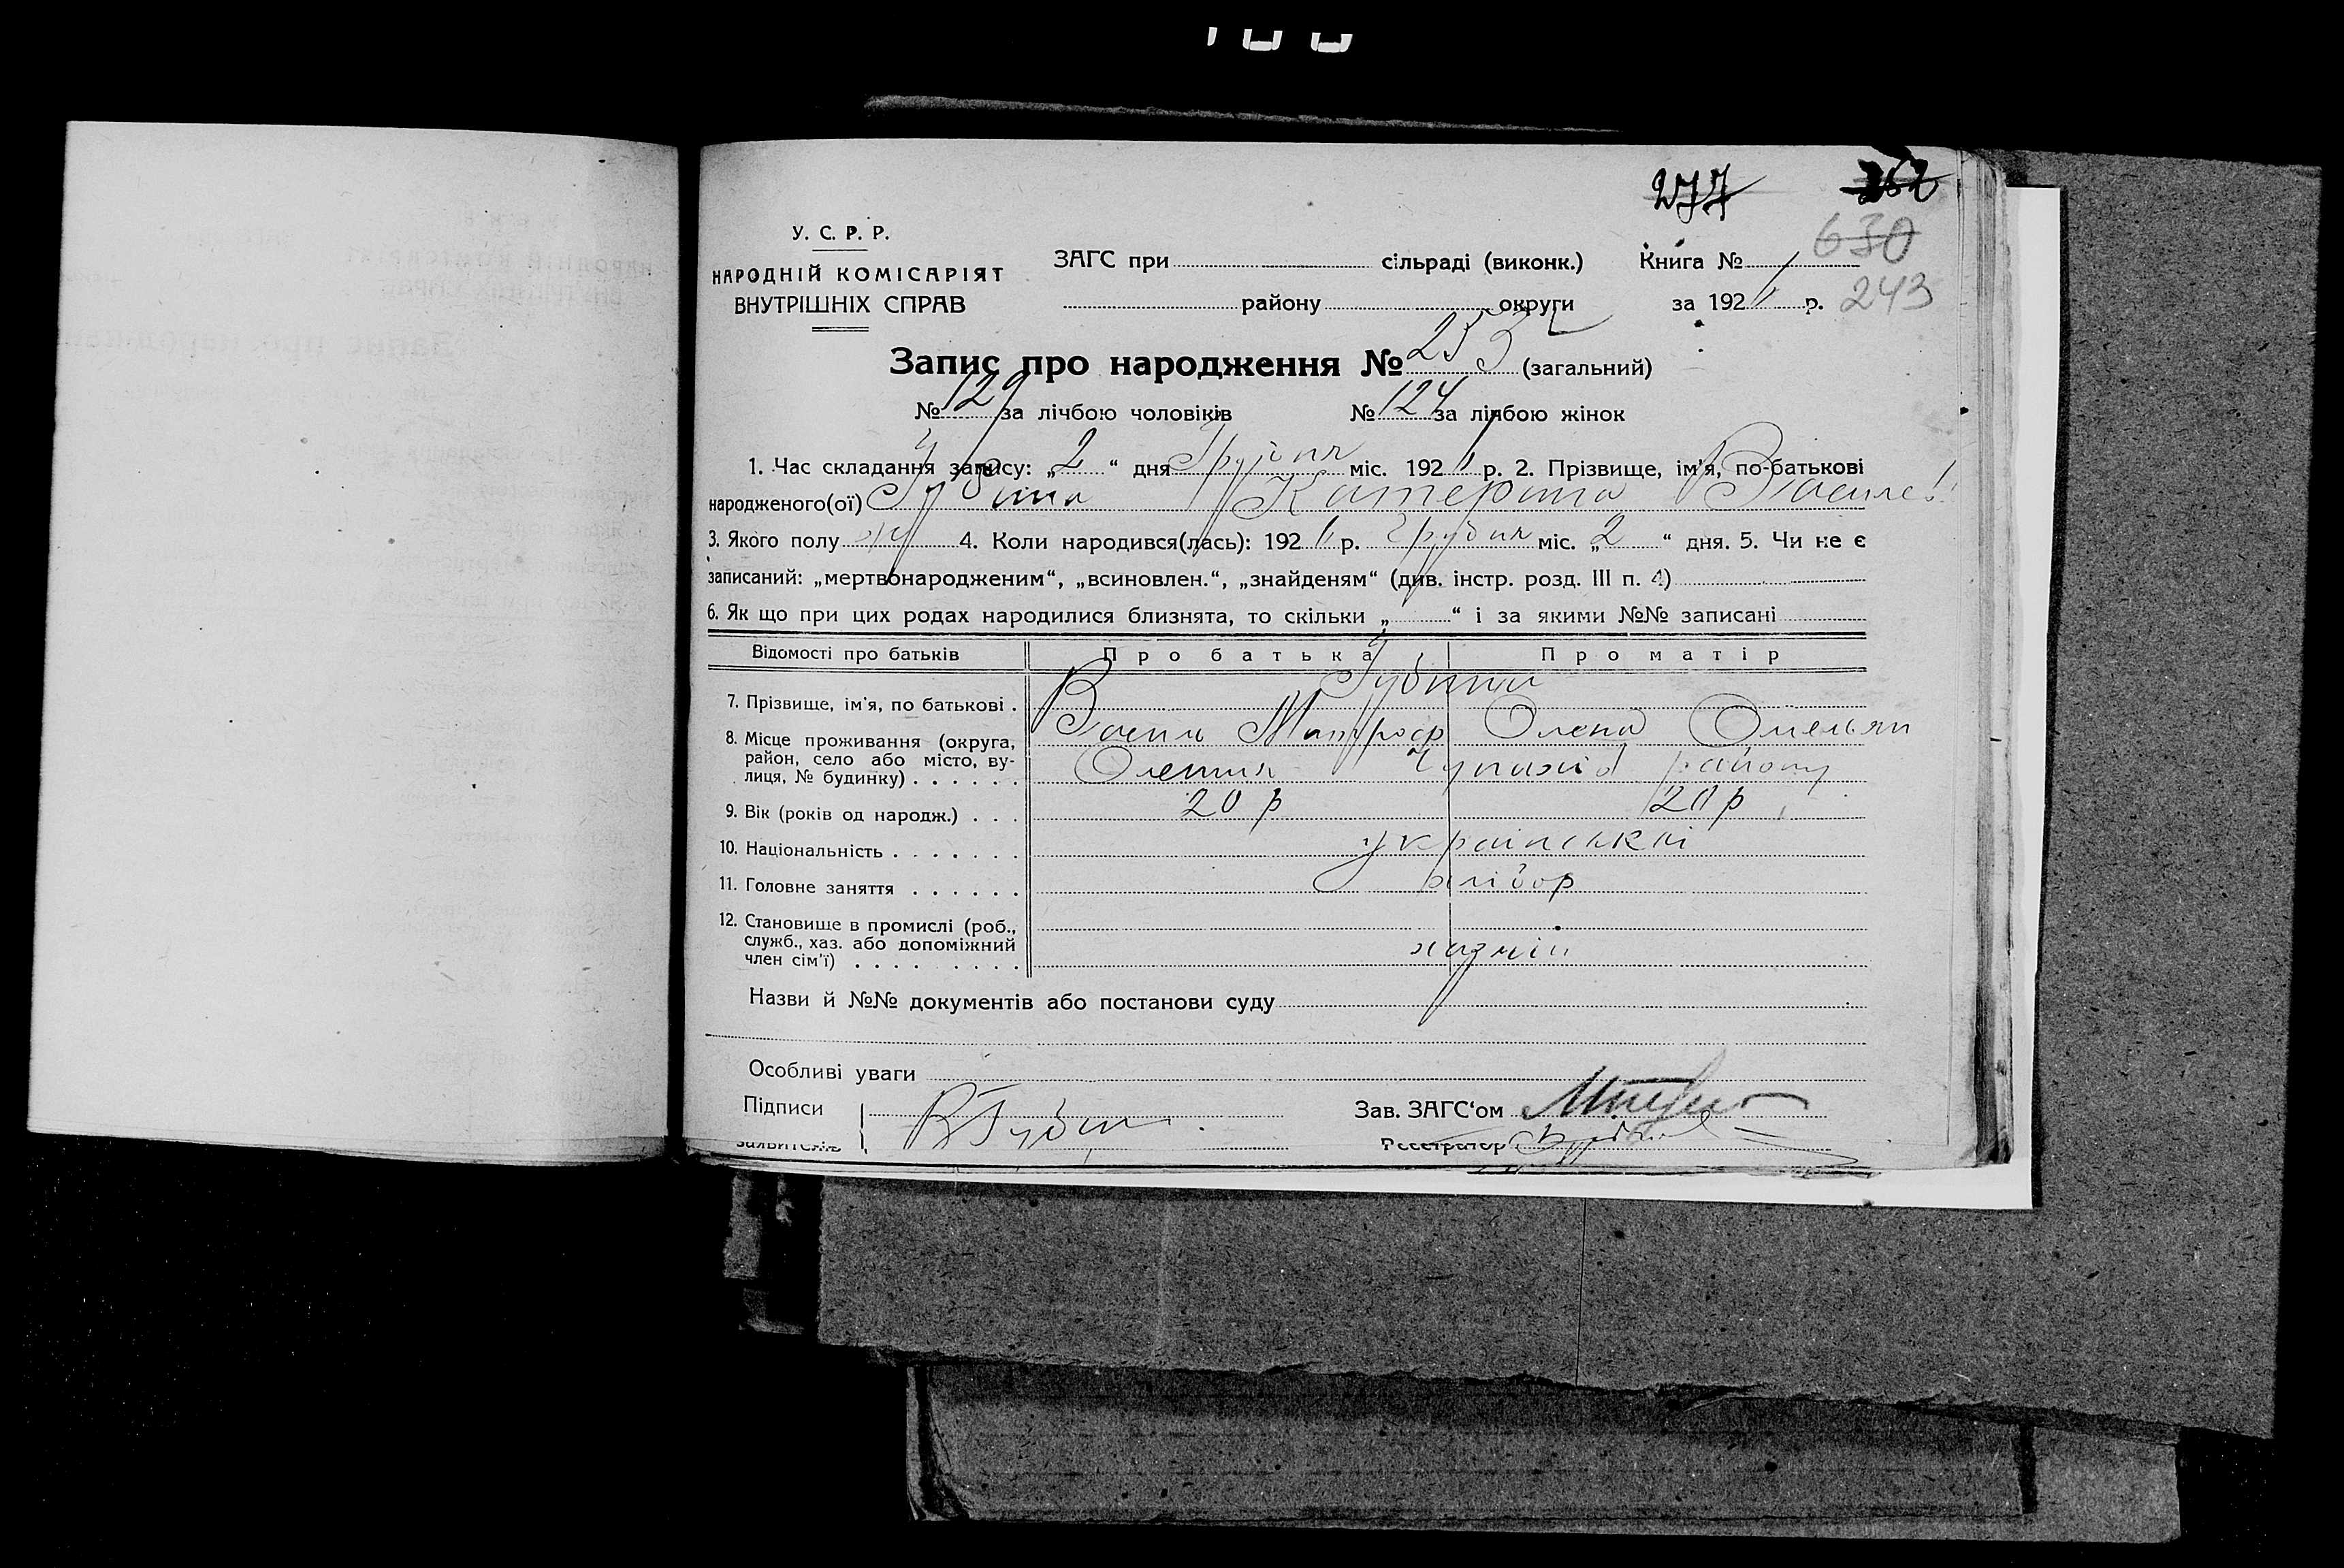 277 262
У. С. Р. Р.
630
НАРОДНІЙ КОМІСАРІЯТ ЗАГС при сільраді (виконк.) Книга №
ВНУТРІШНІХ СПРАВ району округи за 192 р. 243
Запис про народження № 253 (загальний)
№ 129 за лічбою чоловіків № 124 за лічбою жінок
1. Час складання запису: „2“ дня Грудня міс. 192 р. 2. Прізвище, ім'я, по-батькові
народженого(ої) Губина Катерина Василев
3. Якого полу 4. Коли народився(лась): 192 р. Грудня міс. „2“ дня. 5. Чи не є
записаний: „мертвонародженим“, „всиновлен.“, „знайденям“ (див. інстр. розд. III п. 4)
6. Як що при цих родах народилися близнята, то скільки „ “ і за якими №№ записані
Відомості про батьків Про батька Про матір
Губини
7. Прізвище, ім'я, по батькові . Василь Митроф Олена Омельян
8. Місце проживання (округа,
район, село або місто, ву-
лиця, № будинку) . . . . . . району
9. Вік (років од народж.) . . . 20 р 20 р
10. Національність . . . . . . . українській
11. Головне заняття . . . . . . хлібор
12. Становище в промислі (роб.,
служб., хаз. або допоміжний
член сім'ї) . . . . . . . . .
Назви й №№ документів або постанови суду
Особливі уваги
Підписи В Губин Зав. ЗАГС'ом
заявителів Реєстратор